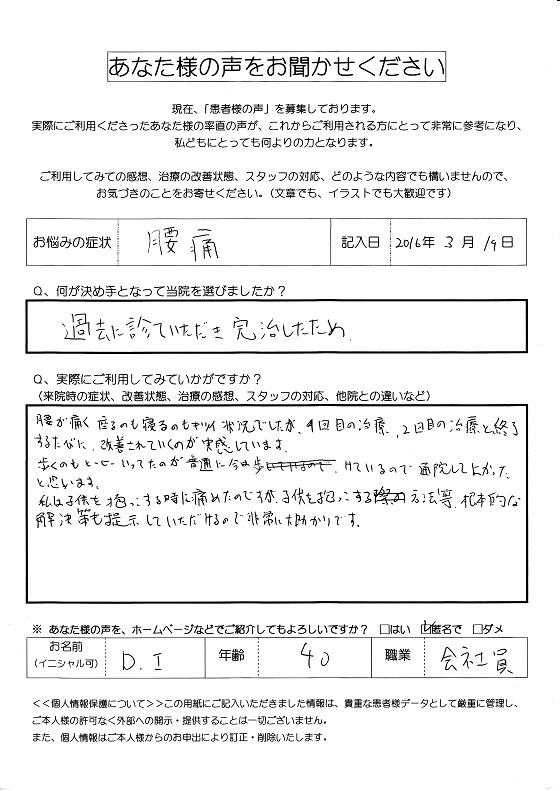 あなた様の声をお聞かせください
現在、「患者様の声」を募集しております。
実際にご利用くださったあなた様の率直の声が、これからご利用される方にとって非常に参考になり、
私どもにとっても何よりの力となります。
ご利用してみての感想、治療の改善状態、スタッフの対応、どのような内容でも構いませんので、
お気づきのことをお寄せください。（文章でも、イラストでも大歓迎です）
お悩みの症状 腰痛 記入日 2016年 3月 19日
Q、何が決め手となって当院を選びましたか？
過去に診ていただき完治したため.
Q、実際にご利用してみていかがですか？
（来院時の症状、改善状態、治療の感想、スタッフの対応、他院との違いなど）
腰が痛く座るのも寝るのもキツイ状況でしたが、1回目の治療、2回目の治療と終了
するたびに、改善されていくのが実感しています。
歩くのもヒーヒーいってたのが普通に今は歩けているので通院して良かった
と思います。
私は子供を抱っこする時に痛めたのですが、子供を抱っこする方法等、根本的な
解決策も提示していただけるので非常に大助かりです。
※ あなた様の声を、ホームページなどでご紹介してもよろしいですか？ □はい ☑匿名で □ダメ
お名前 D.I 年齢 40 職業 会社員
（イニシャル可）
<<個人情報保護について>>この用紙にご記入いただきました情報は、貴重な患者様データとして厳重に管理し、
ご本人様の許可なく外部への開示・提供することは一切ございません。
また、個人情報はご本人様からのお申出により訂正・削除いたします。